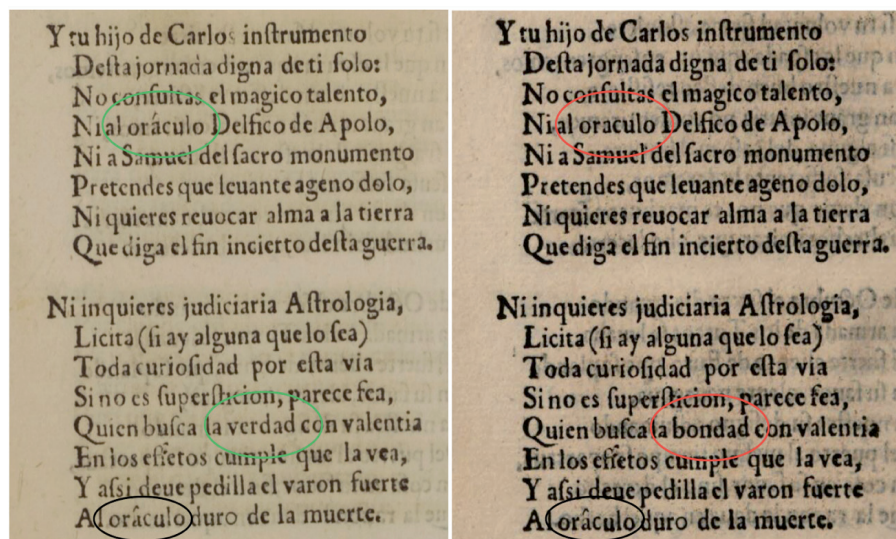 Y tu hijo de Carlos inſtrumento
Deſta jornada digna de ti ſolo:
No conſultas el magico talento,
Ni al oráculo Delfico de Apolo,
Ni a Samuel del ſacro monumento
Pretendes que leuante ageno dolo,
Ni quieres reuocar alma a la tierra
Que diga el fin incierto deſta guerra.
Ni inquieres judiciaria Aſtrologia,
Licita (ſi ay alguna que lo ſea)
Toda curioſidad por eſta via
Si no es ſuperſticion, parece fea,
Quien buſca la verdad con valentia
En los effetos cumple que la vea,
Y aſsi deue pedilla el varon fuerte
Al orâculo duro de la muerte.
Y tu hijo de Carlos inſtrumento
Deſta jornada digna de ti ſolo:
No conſultas el magico talento,
Ni al oraculo Delfico de Apolo,
Ni a Samuel del ſacro monumento
Pretendes que leuante ageno dolo,
Ni quieres reuocar alma a la tierra
Que diga el fin incierto deſta guerra.
Ni inquieres judiciaria Aſtrologia,
Licita (ſi ay alguna que lo ſea)
Toda curioſidad por eſta via
Si no es ſuperſticion, parece fea,
Quien buſca la bondad con valentia
En los effetos cumple que la vea,
Y aſsi deue pedilla el varon fuerte
Al orâculo duro de la muerte.